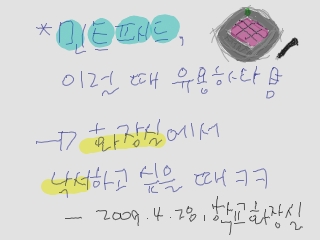 * 민트패드,
이럴 때 유용하다 함
→ 화장실에서
낙서하고 싶을 때 ㅋㅋ
— 2009.4.20, 학교화장실